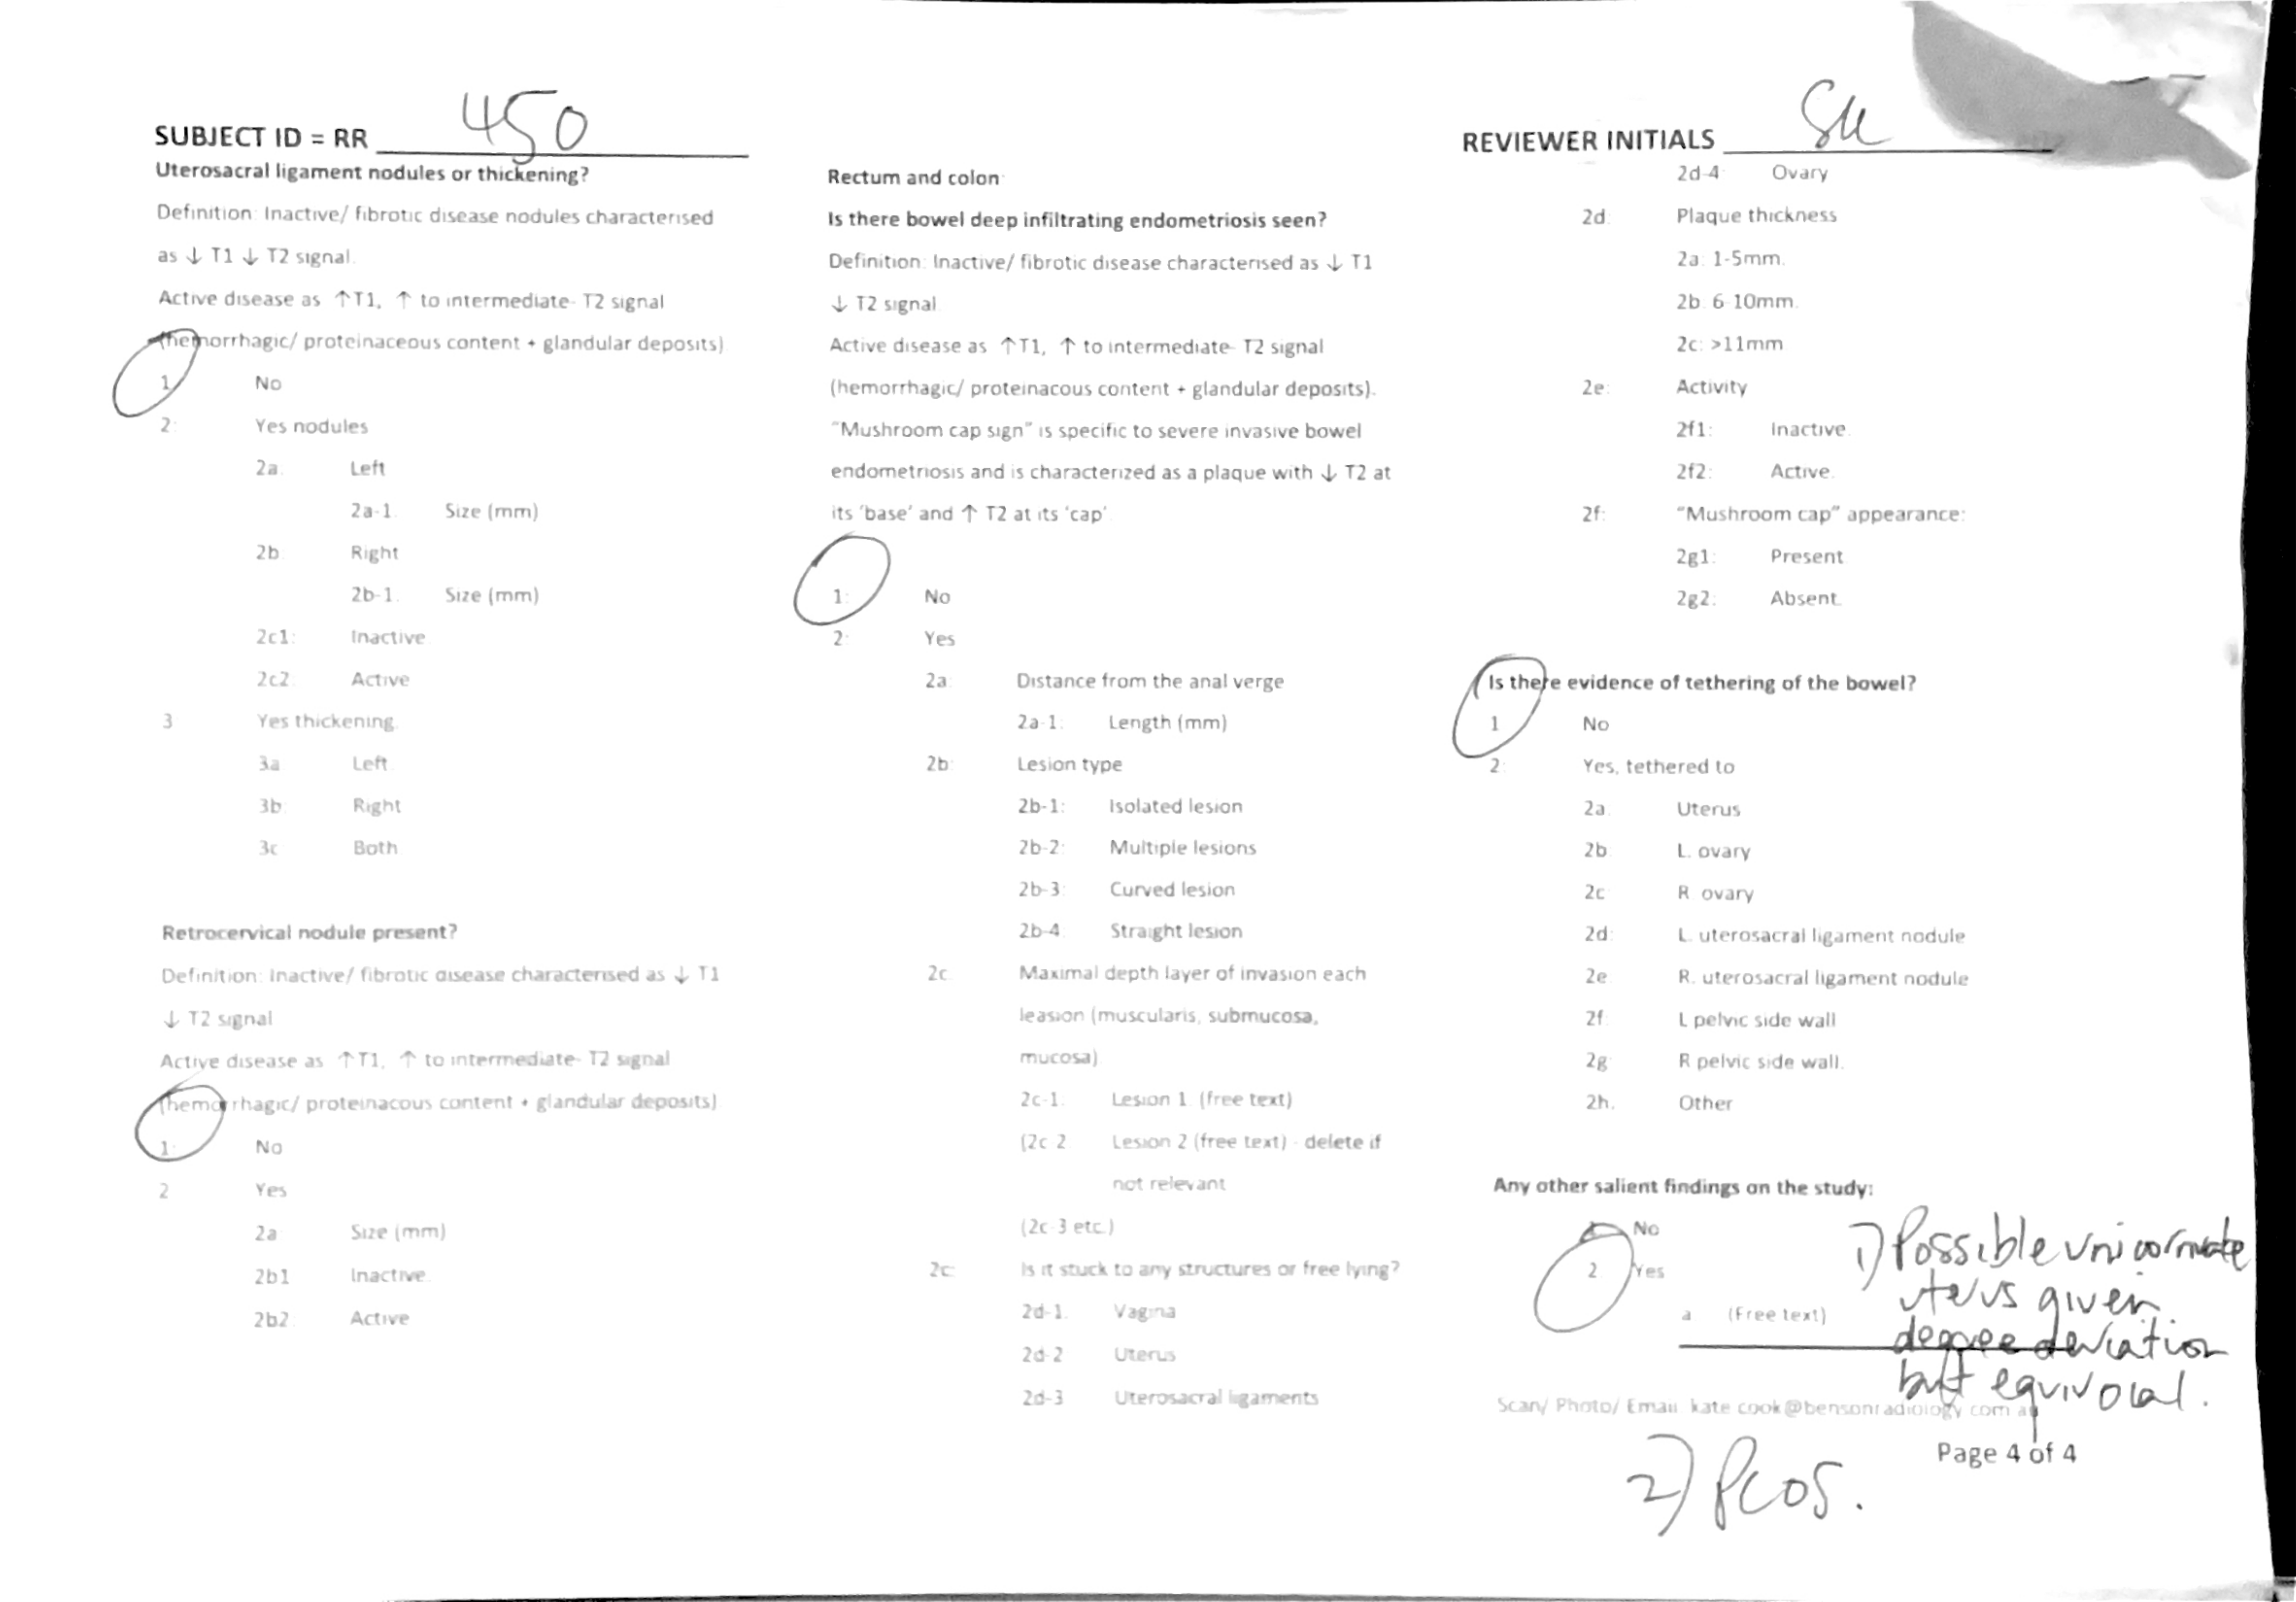 SUBJECT ID = RR 450
Uterosacral ligament nodules or thickening?
Definition: Inactive/ fibrotic disease nodules characterised
as ↓ T1 ↓ T2 signal.
Active disease as ↑T1, ↑ to intermediate- T2 signal
(hemorrhagic/ proteinaceous content + glandular deposits)
1 No
2: Yes nodules
2a. Left
2a-1. Size (mm)
2b Right
2b-1. Size (mm)
2c1: Inactive
2c2. Active
3 Yes thickening.
3a Left.
3b Right
3c Both
Retrocervical nodule present?
Definition: Inactive/ fibrotic disease characterised as ↓ T1
↓ T2 signal
Active disease as ↑T1, ↑ to intermediate- T2 signal
(hemorrhagic/ proteinacous content + glandular deposits).
1: No
2 Yes
2a Size (mm)
2b1 Inactive.
2b2. Active
Rectum and colon
Is there bowel deep infiltrating endometriosis seen?
Definition: Inactive/ fibrotic disease characterised as ↓ T1
↓ T2 signal
Active disease as ↑T1, ↑ to intermediate- T2 signal
(hemorrhagic/ proteinacous content + glandular deposits).
"Mushroom cap sign" is specific to severe invasive bowel
endometriosis and is characterized as a plaque with ↓ T2 at
its 'base' and ↑ T2 at its 'cap'
1: No
2: Yes
2a: Distance from the anal verge
2a-1: Length (mm)
2b: Lesion type
2b-1: Isolated lesion
2b-2: Multiple lesions
2b-3: Curved lesion
2b-4 Straight lesion
2c: Maximal depth layer of invasion each
leasion (muscularis, submucosa,
mucosa)
2c-1. Lesion 1 (free text)
(2c-2 Lesion 2 (free text) - delete if
not relevant
(2c-3 etc.)
2c: Is it stuck to any structures or free lying?
2d-1. Vagina
2d-2 Uterus
2d-3 Uterosacral ligaments
REVIEWER INITIALS
2d-4 Ovary
2d: Plaque thickness
2a: 1-5mm.
2b: 6-10mm.
2c: >11mm
2e: Activity
2f1: Inactive.
2f2: Active.
2f: "Mushroom cap" appearance:
2g1: Present
2g2: Absent.
Is there evidence of tethering of the bowel?
1 No
2: Yes, tethered to
2a: Uterus
2b L. ovary
2c R ovary
2d: L. uterosacral ligament nodule
2e: R. uterosacral ligament nodule
2f L pelvic side wall
2g R pelvic side wall.
2h. Other
Any other salient findings on the study:
No
2 Yes
a (Free text)
1) Possible unicornuate
uterus given
degree deviation
but equivocal.
Scan/ Photo/ Email kate cook@bensonradiology com au
Page 4 of 4
2) PCOS.